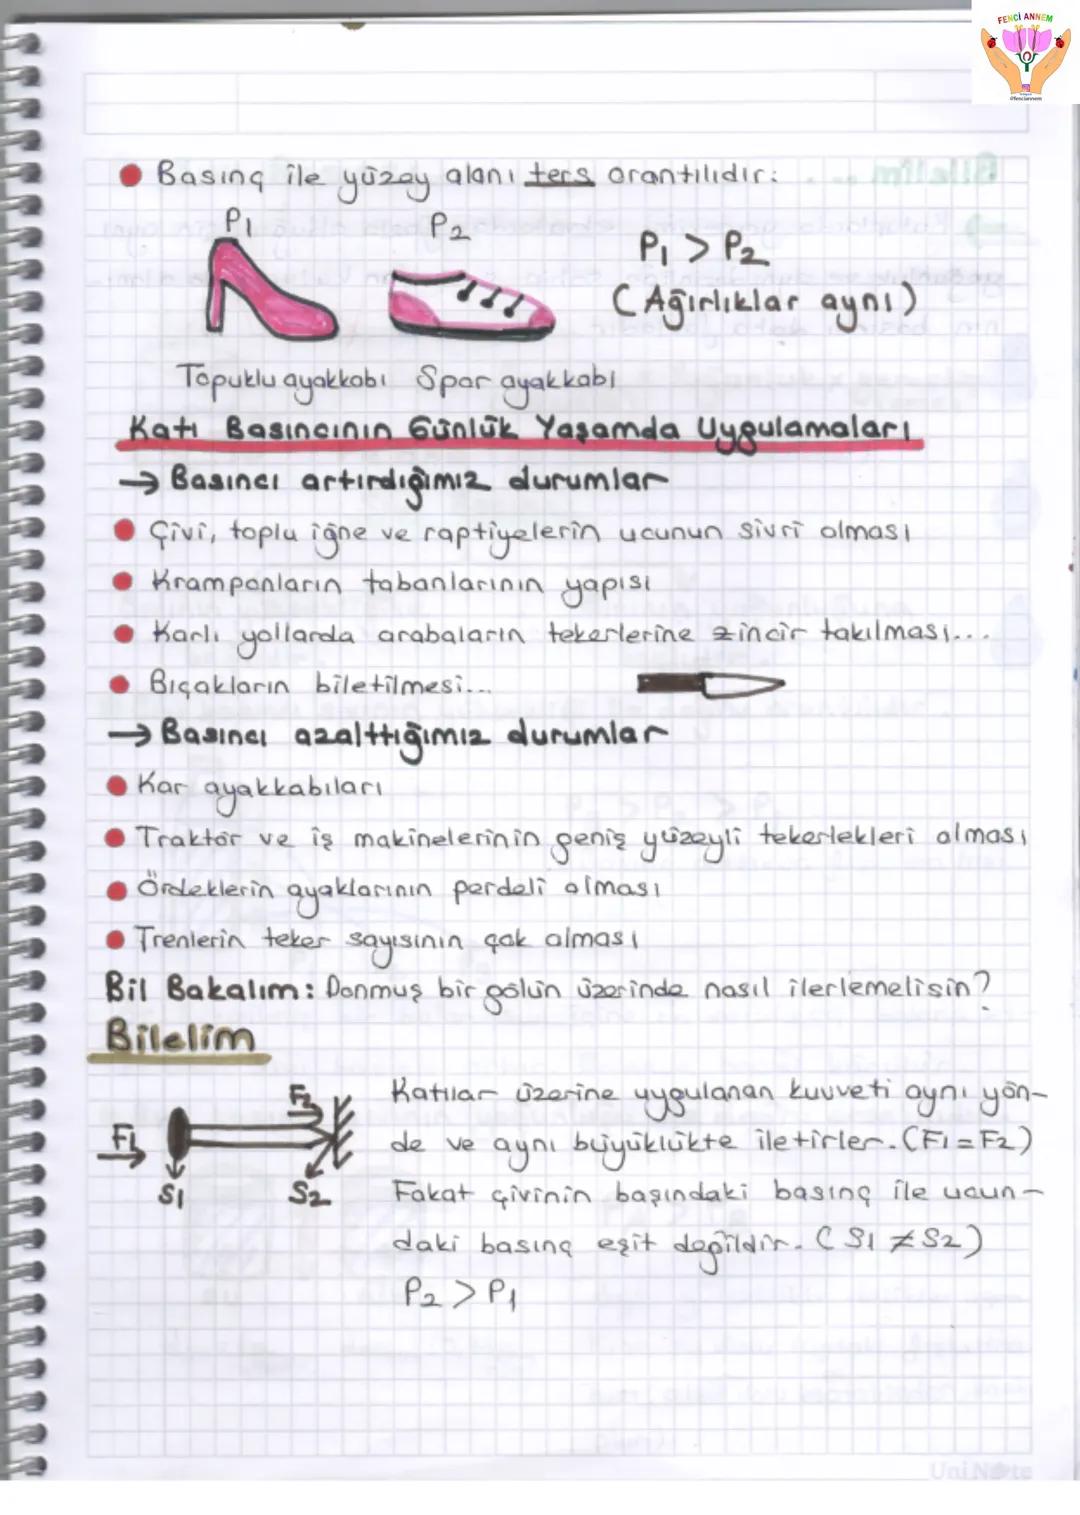 FENCİ ANNEM
@fenciannem
Basınç ile yüzey alanı ters orantılıdır:
P1 P2
P1 > P2
(Ağırlıklar aynı)
Topuklu ayakkabı Spor ayakkabı
Katı Basıncının Günlük Yaşamda Uygulamaları
→ Basıncı artırdığımız durumlar
Çivi, toplu iğne ve raptiyelerin ucunun sivri olması
Kramponların tabanlarının yapısı
Karlı yollarda arabaların tekerlerine zincir takılması...
Bıçakların biletilmesi...
→ Basıncı azalttığımız durumlar
Kar ayakkabıları
Traktör ve iş makinelerinin geniş yüzeyli tekerlekleri olması
Ördeklerin ayaklarının perdeli olması
Trenlerin teker sayısının çok olması
Bil Bakalım: Donmuş bir gölün üzerinde nasıl ilerlemelisin?
Bilelim
F1 F2
S1 S2
Katılar üzerine uygulanan kuvveti aynı yön-
de ve aynı büyüklükte iletirler. (F1 = F2)
Fakat çivinin başındaki basınç ile ucun-
daki basınç eşit değildir. (S1 ≠ S2)
P2 > P1
UniNote